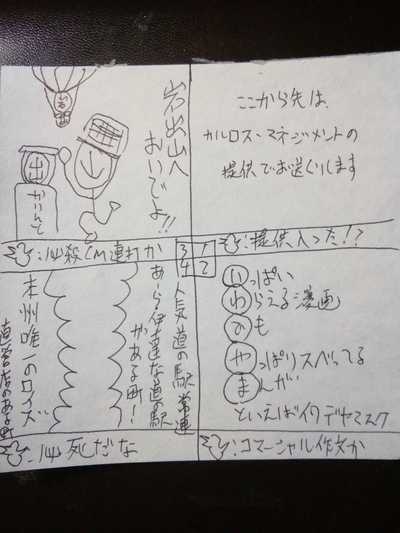 ここから先は、
カルロス・マネジメントの
提供でお送りします
:提供入った!?
1
2
3
4
いっぱい
わらえる漫画
でも
やっぱりスベってる
まんが
といえばイワデヤマスク
:コマーシャル作文か
岩出山へ
おいでよ!!
出
かりんと
:必殺CM連打か
人気道の駅常連
あ・ら・伊達な道の駅
がある町!
本州唯一のロイズ
直営店のある町
:必死だな